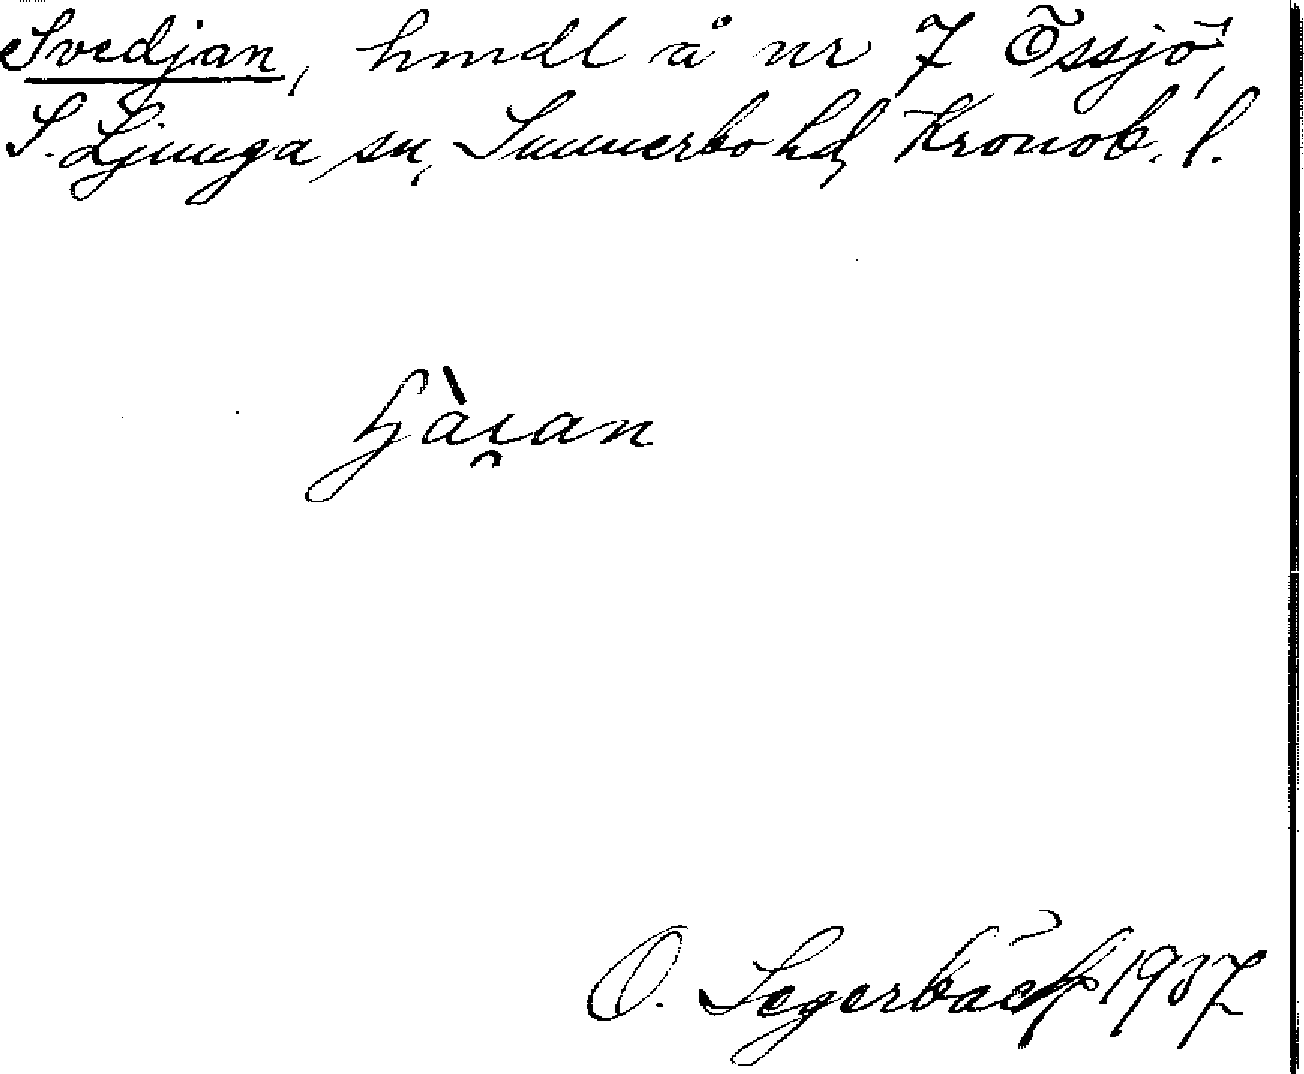 Svedjan, hmdl å nr 7 Össjö,
S. Ljunga sn, Sunnerbo hd, Kronob. l.
O. Segerbäck 1937